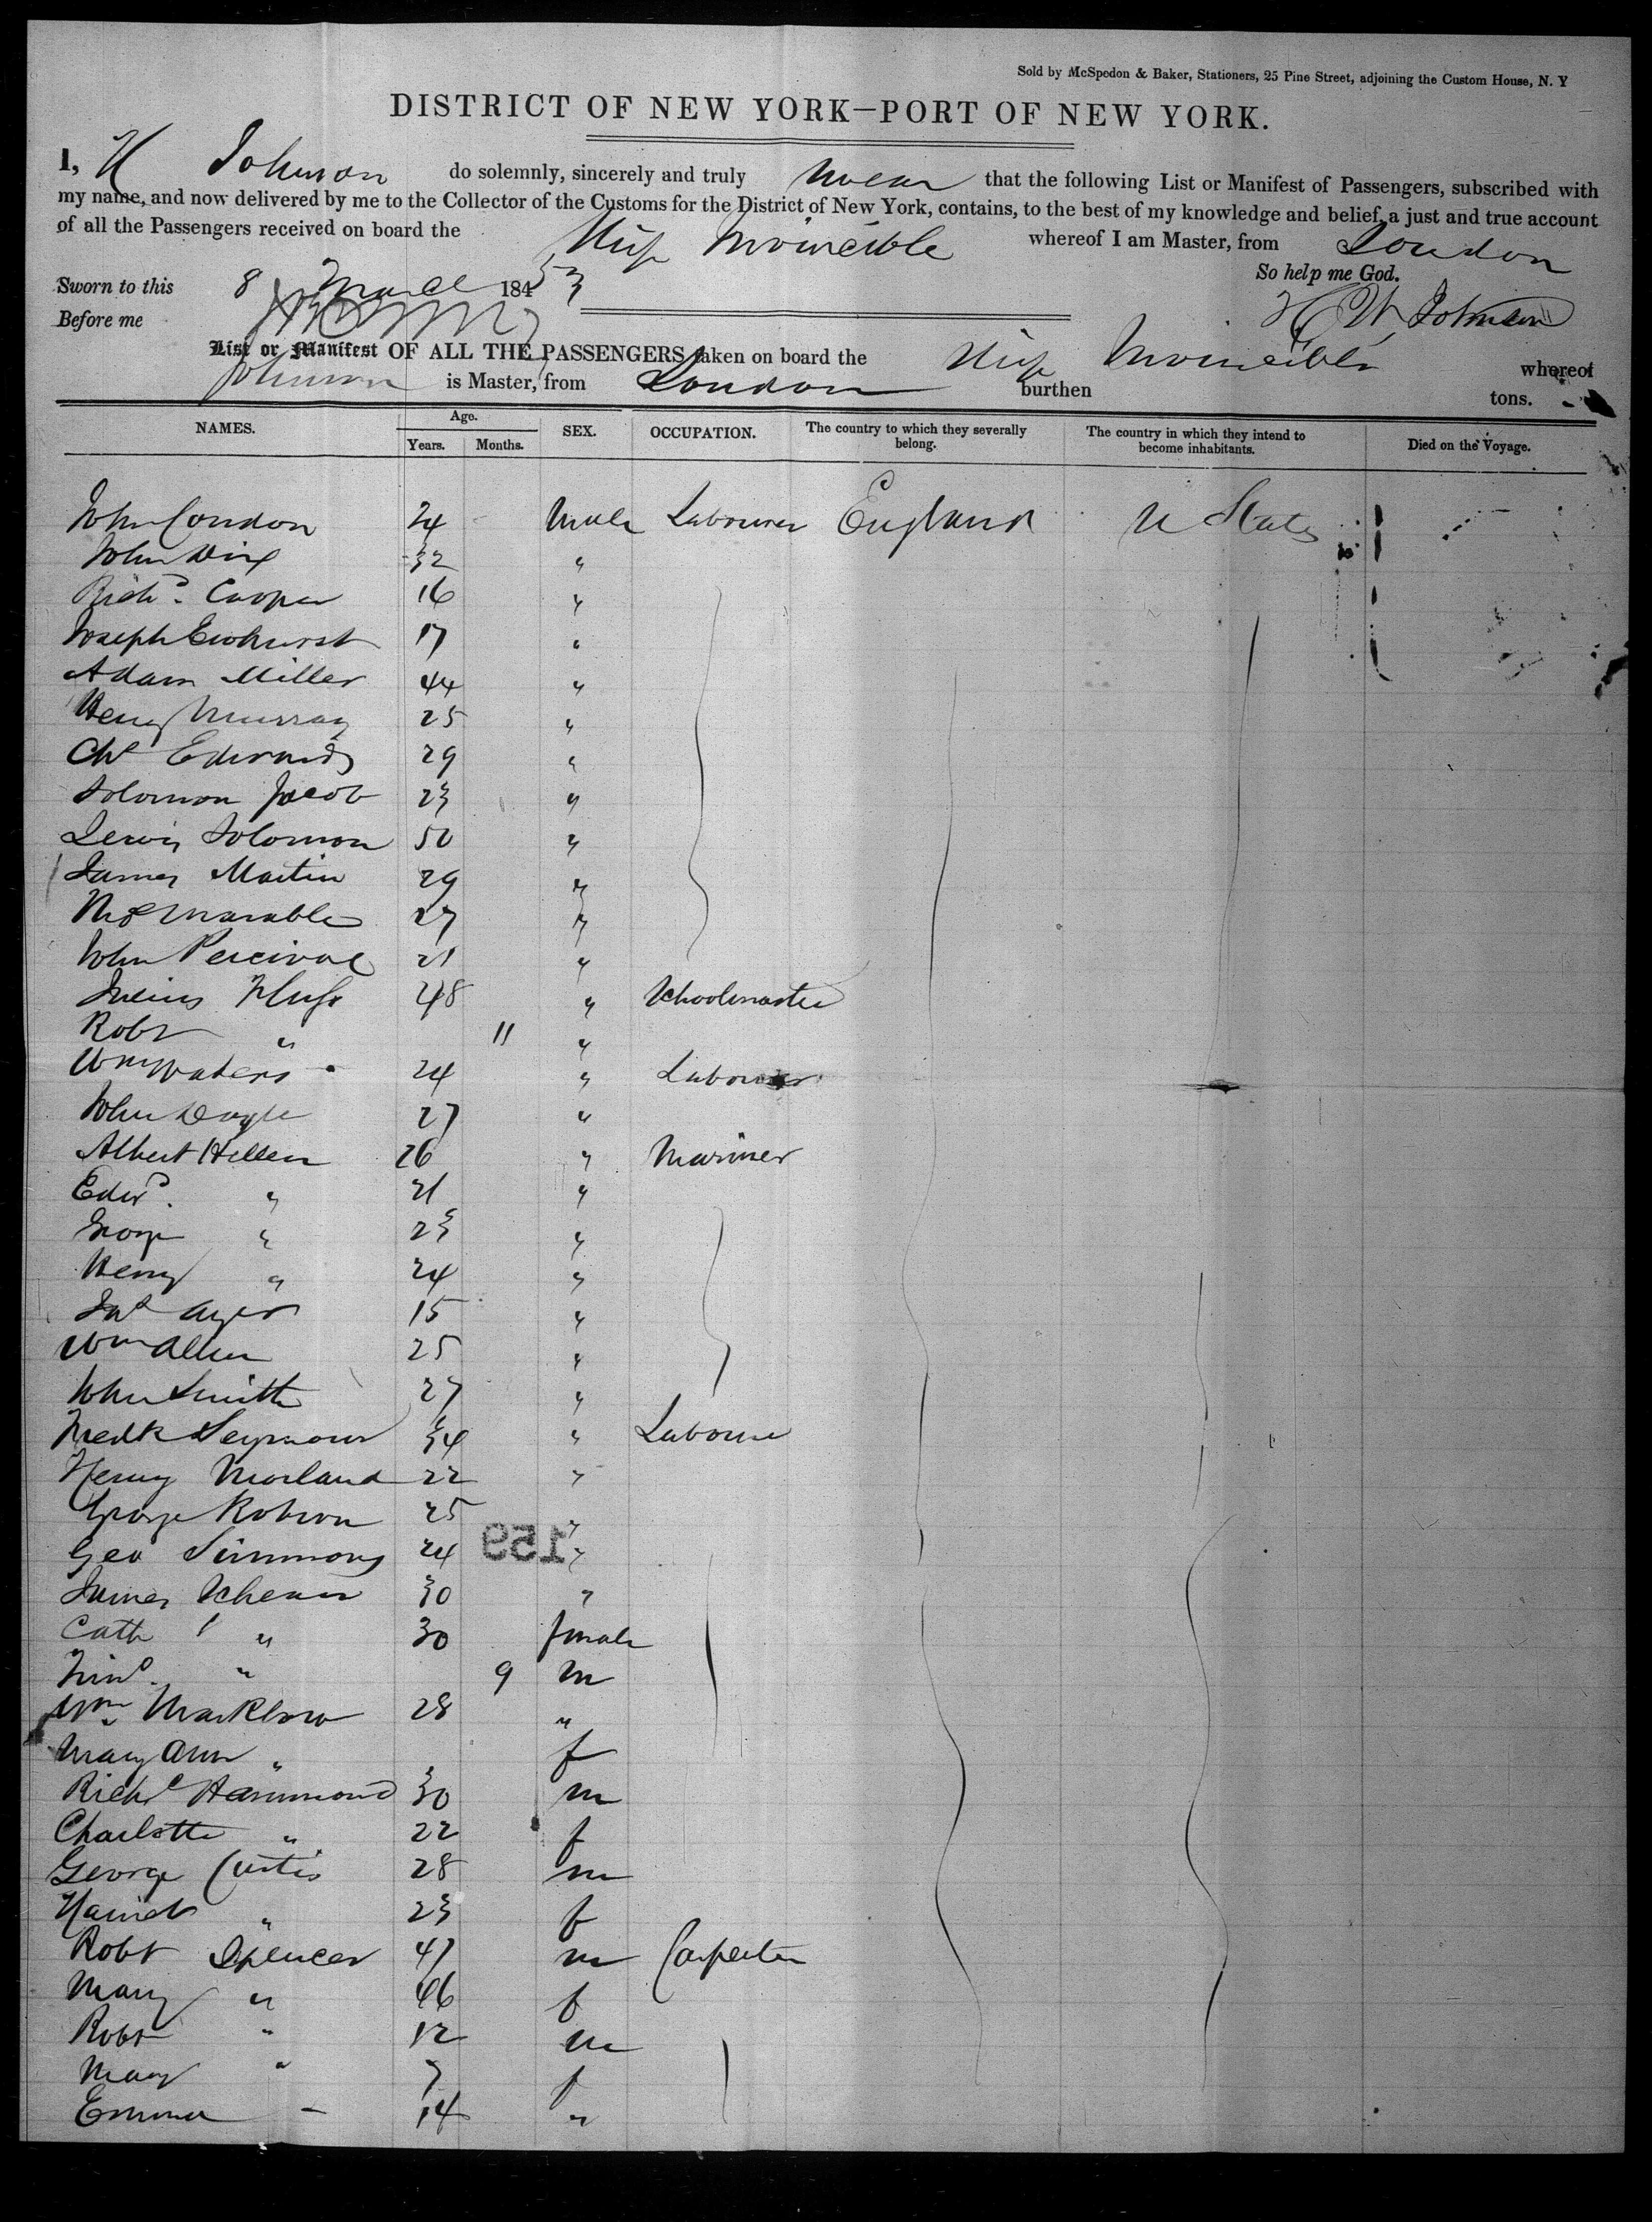 Sold by McSpedon & Baker, Stationers, 25 Pine Street, adjoining the Custom House, N. Y
DISTRICT OF NEW YORK—PORT OF NEW YORK.
I, H Johnson do solemnly, sincerely and truly swear that the following List or Manifest of Passengers, subscribed with
my name, and now delivered by me to the Collector of the Customs for the District of New York, contains, to the best of my knowledge and belief, a just and true account
of all the Passengers received on board the Ship Invincible whereof I am Master, from London
So help me God.
Sworn to this 8 March 1853
Before me
H W Johnson
List or Manifest OF ALL THE PASSENGERS taken on board the Ship Invincible whereof
Johnson is Master, from London burthen tons.
NAMES. Age. Years. Months. SEX. OCCUPATION. The country to which they severally belong. The country in which they intend to become inhabitants. Died on the Voyage.
John Condon 24 Male Labourer England U States
John 32 "
Richd. Cooper 16 "
Joseph Ewhurst 17 "
Adam Miller 44 "
Henry Murray 25 "
Chs Edwards 29 "
Solomon Jacob 23 "
Lewis Solomon 50 "
James Martin 29 "
Marable 27 "
John Percival 21 "
Julius 48 " Schoolmaster
Robt " 11 "
Wm Waters 24 " Labourer
John Doyle 27 "
Albert Hellen 26 " Mariner
Edwd. " 21 "
George " 23 "
Henry " 24 "
Jas Ayer 15 "
Wm Allen 25 "
John Smith 27 "
Fredk Seymour 34 " Labourer
Henry Morland 22 "
George Robson 25 "
Geo Simmons 24 "
159
James 30 "
Cath " 30 female
" 9 m
Wm Marklow 28 "
Mary Ann " f
Richd Hammond 30 m
Charlotte " 22 f
George Curtis 28 m
Harriet " 23 f
Robt Spencer 47 m Carpenter
Mary " 46 f
Robt " 12 m
Mary " 7 f
Emma – 14 "